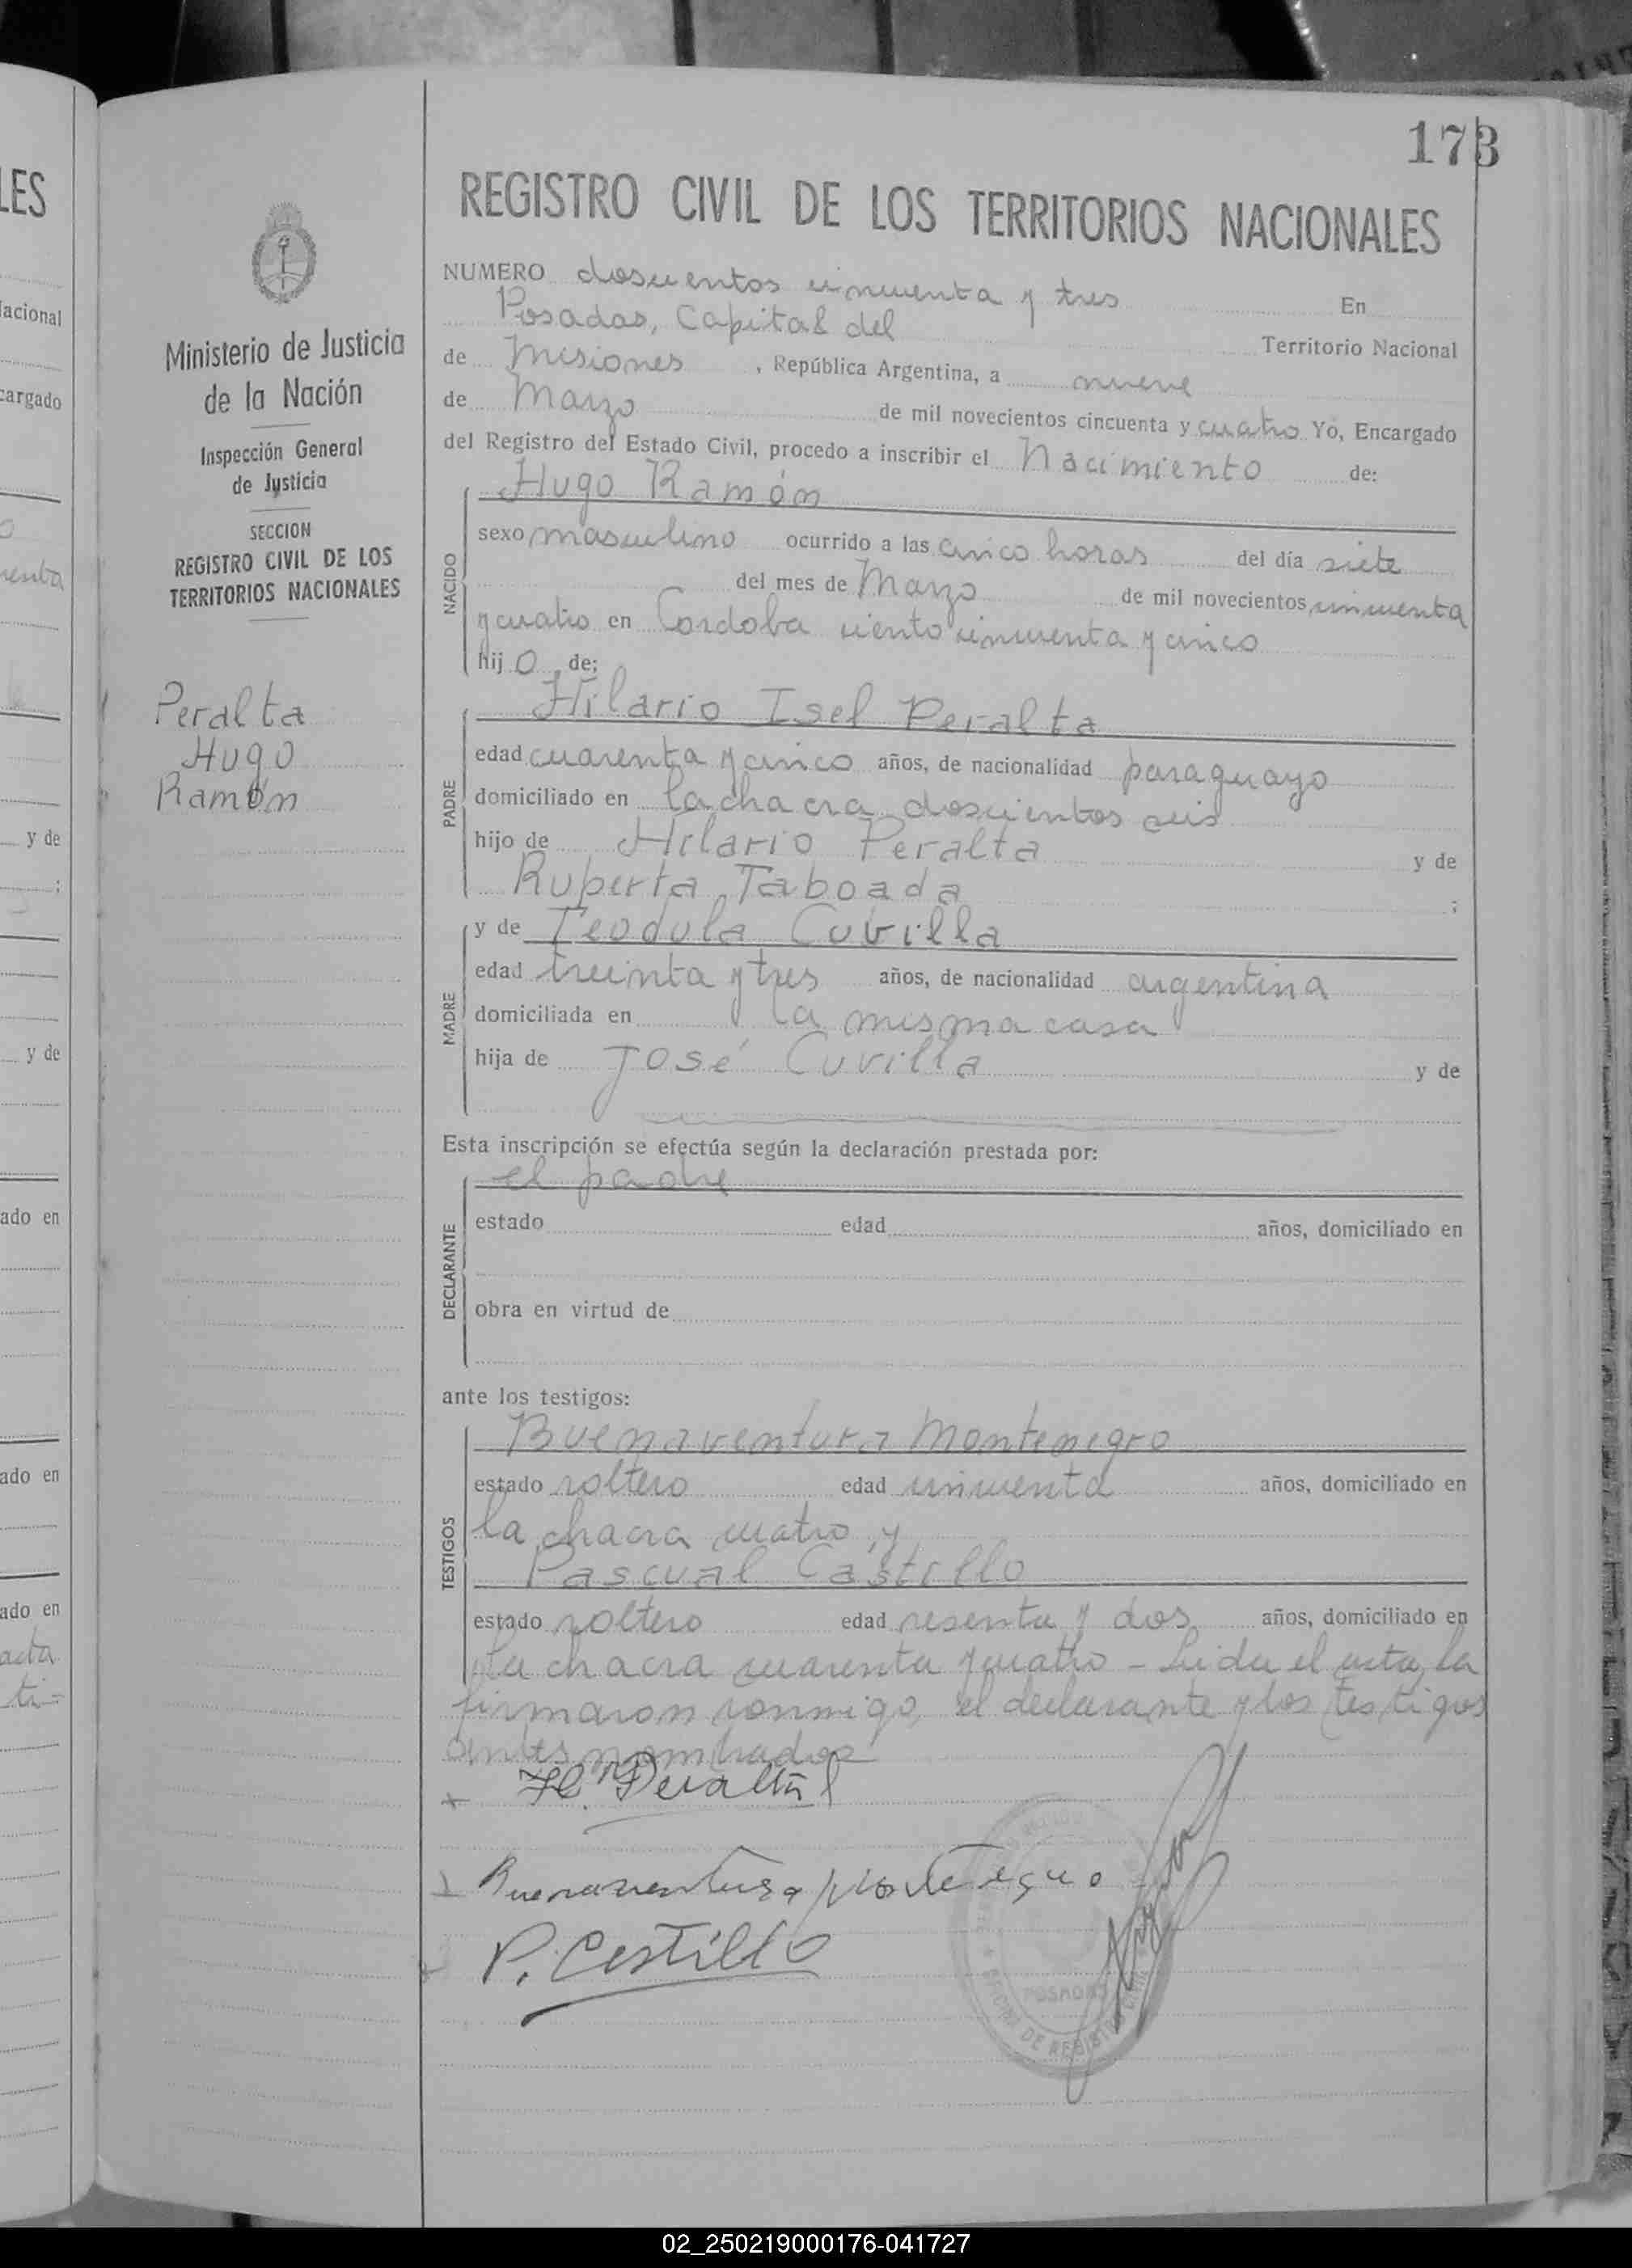 173
REGISTRO CIVIL DE LOS TERRITORIOS NACIONALES
Ministerio de Justicia
de la Nación
Inspección General
de Justicia
SECCION
REGISTRO CIVIL DE LOS
TERRITORIOS NACIONALES
Peralta
Hugo
Ramón
NUMERO doscientos cincuenta y tres En
Posadas, Capital del Territorio Nacional
de Misiones, República Argentina, a nueve
de Marzo de mil novecientos cincuenta y cuatro Yo, Encargado
del Registro del Estado Civil, procedo a inscribir el Nacimiento de:
Hugo Ramón
NACIDO
sexo masculino ocurrido a las cinco horas del día siete
del mes de Marzo de mil novecientos cincuenta
y cuatro en Cordoba ciento cincuenta y cinco
hijo de:
Hilario Isel Peralta
PADRE
edad cuarenta y cinco años, de nacionalidad paraguayo
domiciliado en la chacra doscientos seis
hijo de Hilario Peralta y de
Ruperta Taboada ;
y de Teodula Cuvilla
MADRE
edad treinta y tres años, de nacionalidad argentina
domiciliada en la misma casa
hija de José Cuvilla y de
Esta inscripción se efectúa según la declaración prestada por:
el padre
DECLARANTE
estado edad años, domiciliado en
obra en virtud de
ante los testigos:
TESTIGOS
Buenaventura Montenegro
estado soltero edad cincuenta años, domiciliado en
la chacra cuatro y
Pascual Castillo
estado soltero edad sesenta y dos años, domiciliado en
la chacra cuarenta y cuatro - Leida el acta, la
firmaron conmigo, el declarante y los testigos
antes nombrados
H. Peralta
Buenaventura Montenegro
P. Castillo
POSADAS
OFICINA DE REGISTRO CIVIL
LES
Nacional
cargado
y de
;
y de
ado en
ado en
ado en
acta
ti=
02_250219000176-041727